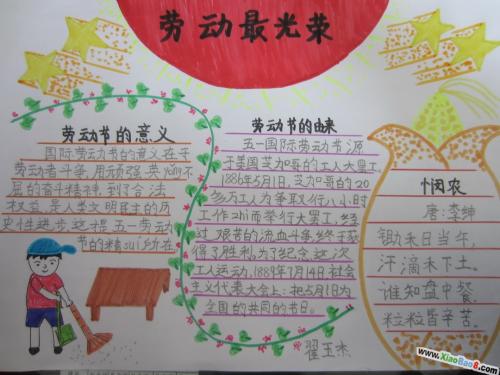 劳动最光荣
劳动节的意义
国际劳动节的意义在于
劳动者斗争,用顽强、英yong不
屈的奋斗精神,到了合法
权益,是人类文明民主的历
史性进步,这提五一劳动
节的精sui所在
劳动节的由来
五一国际劳动节源
于美国芝加哥的工人大罢工,
1886年5月1日,芝加哥的20
多万工人为争取行八小时
工作zhi而举行大罢工,经
过艰苦的流血斗争,终于获
得了胜利,为了纪念这次
工人运动,1889年7月14日社会
主义代表大会上:把5月1日为
全国的共同的节日。
翟玉杰
悯农
唐:李绅
锄禾日当午,
汗滴禾下土。
谁知盘中餐,
粒粒皆辛苦。
www.XiaoBao8.com